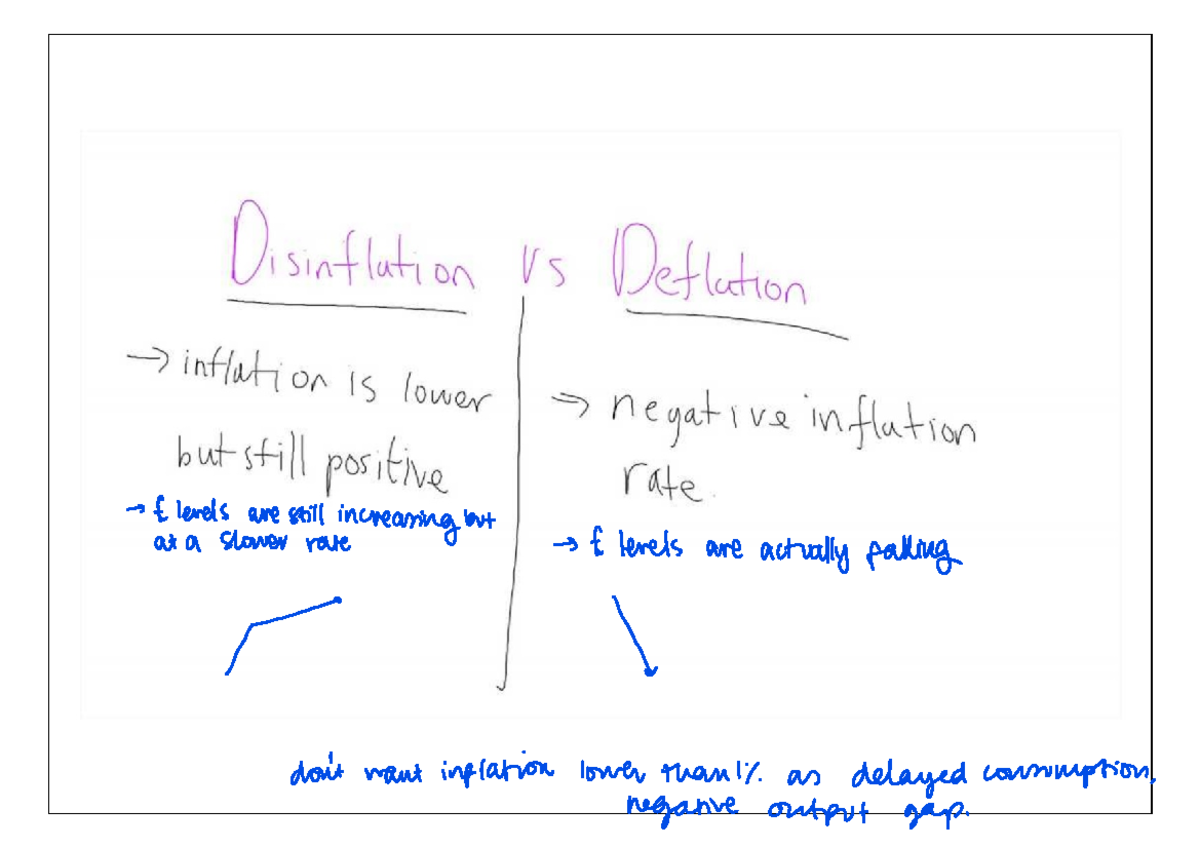 Disinflation vs Deflation
→ inflation is lower
but still positive
→ £ levels are still increasing but
at a slower rate
⇒ negative inflation
rate.
→ £ levels are actually falling
don't want inflation lower than 1% as delayed consumption,
negative output gap.